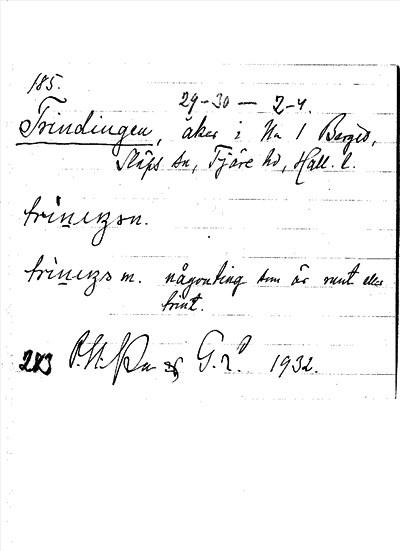 185.
29-30 — 2-4.
Trindingen, åker i No 1 Berget,
Släps sn, Fjäre hd, Hall. l.
trinengsn.
trinengs m. någonting som är runt eller
trint.
283 1932.